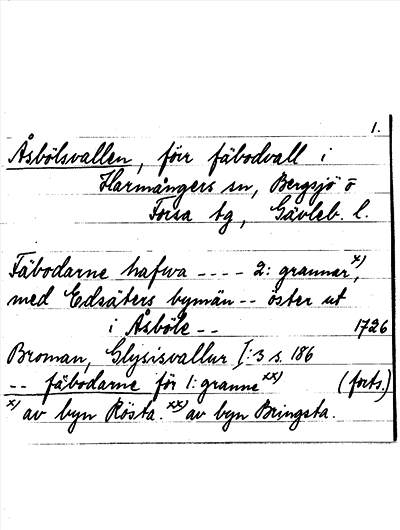 1.
Åsbölsvallen, förr fäbodvall i
Harmångers sn, Bergsjö o
Forsa tg, Gävleb. l.
Fäbodarne hafwa ---- 2: grannar x),
med Edsäters bymän -- öster ut
i Åsböle -- 1726
Broman, Glysisvallur I:3 s. 186
-- fäbodarne för 1: granne xx) (forts.)
x) av byn Rösta. xx) av byn Bringsta.